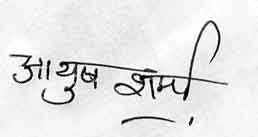 आयुष शर्मा